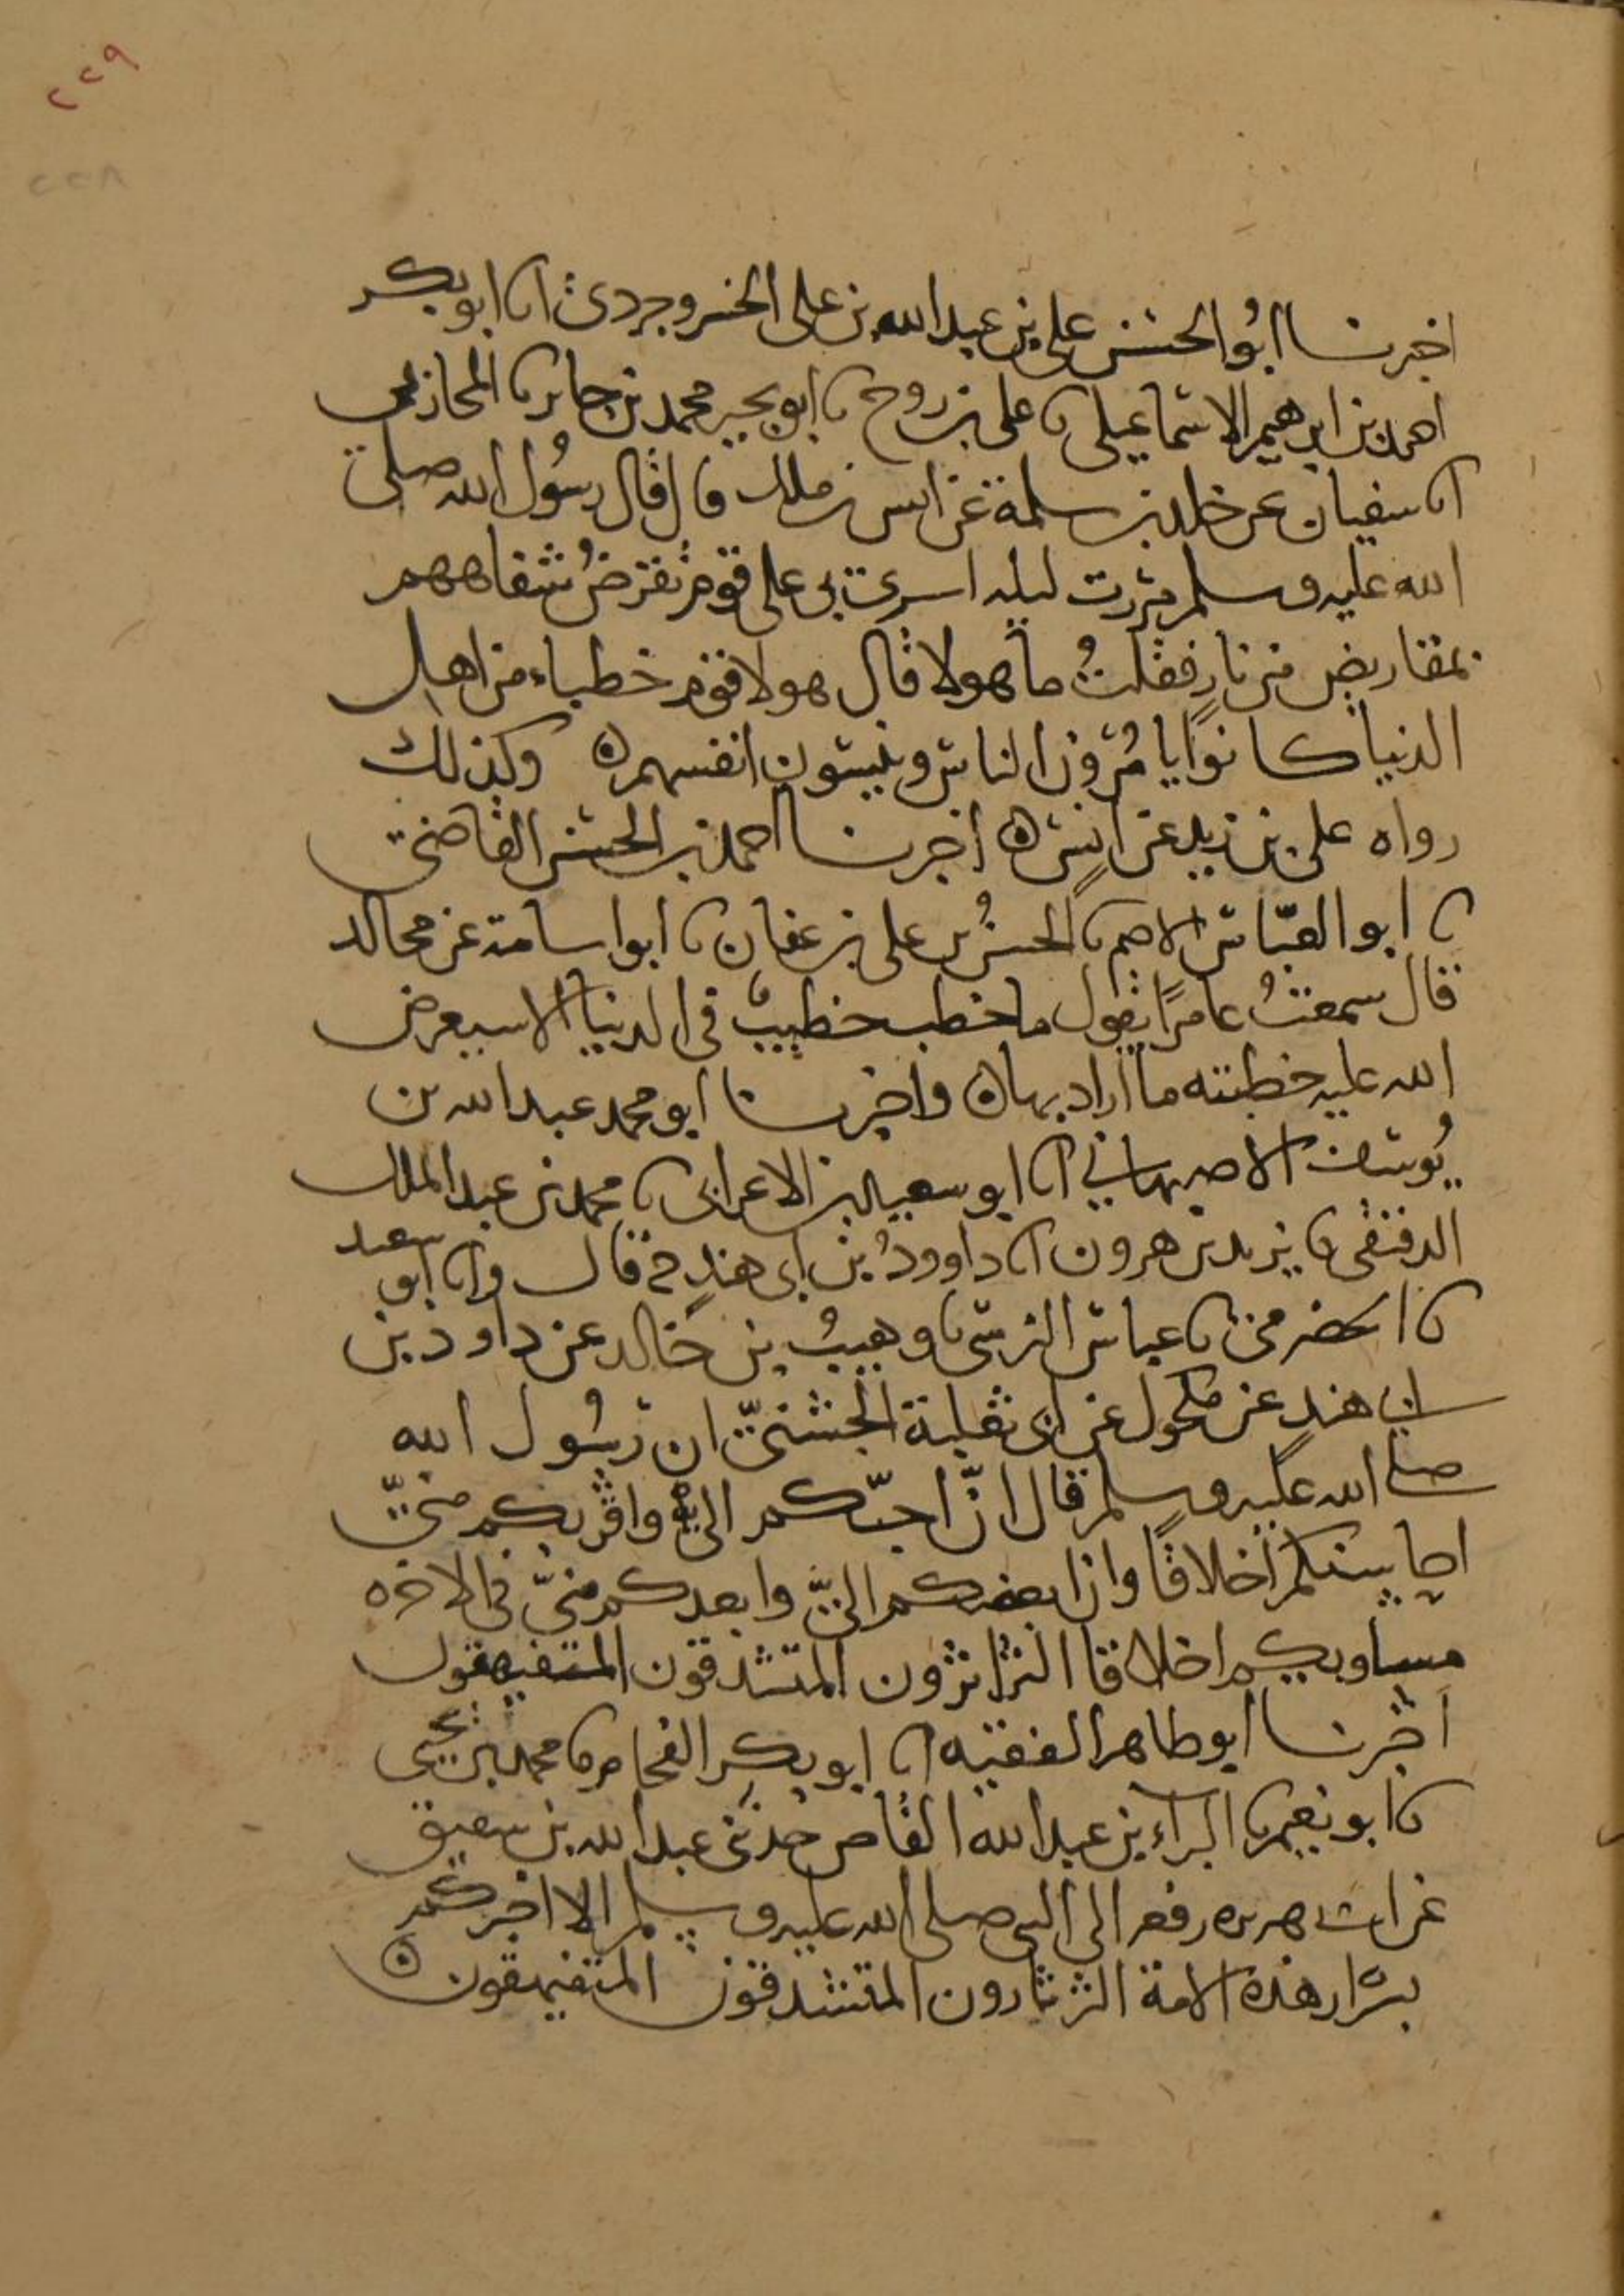 ٢٢٩
٢٢٨
اخبرنا ابُو الحسن علي بن عبد الله بن علي الخسروجردي انا ابو بكر
احمد بن ابرهيم الاسماعيلي نا علي بن روح نا ابو بجير محمد بن جابر نا المحاربي
انا سفيان عن خلد بن سلمة عن انس بن ملك قال قال رسُول الله صلى
الله عليه وسلم مررت ليله اسري بي على قوم تقرضُ شفاههم
بمقاريض من نارٍ فقلتُ ما هولا قال هولا قوم خطباء من اهل
الدنيا كانوا يامُرون الناس وينسون انفسهم ه وكذلك
رواه علي بن زيد عن انسٍ ه اخبرنا احمد بن الحسن القاضي
نا ابو العبّاس الاصم نا الحسنُ بن علي بن عفان نا ابو اسامة عن مجالد
قال سمعتُ عامرًا يقول ما خطب خطيبٌ في الدنيا الا سيعرض
الله عليه خطبته ما اراد بها ه واخبرنا ابو محمد عبد الله بن
يُوسف الاصبهاني انا ابو سعيد بن الاعرابي نا محمد بن عبد الملك
الدقيقي نا يزيد بن هرون انا داوودُ بن ابي هندٍ ح قال وانا ابو سعيد
نا الحضرمي نا عباس النرسي نا وهيبُ بن خالد عن داود بن
ابي هندٍ عن مكحول عن ابي ثعلبة الخشنيّ ان رسُول الله
صلى الله عليه وسلم قال انّ احبّكم اليّ واقربكم منيّ
احاسنكم اخلاقًا وان ابغضكم اليّ وابعدكم منيّ في الاخره
مساويكم اخلاقا الثرثارون المتشدقون المتفيهقون
اخبرنا ابو طاهر الفقيه انا ابو بكر الفحام نا محمد بن يحيى
نا ابو نعيم نا البراء بن عبد الله القاص حدثني عبد الله بن شقيق
عن ابي هريره رفعه الى النبي صلى الله عليه وسلم الا اخبركم
بشرار هذه الامة الثرثارون المتشدقون المتفيهقون ه